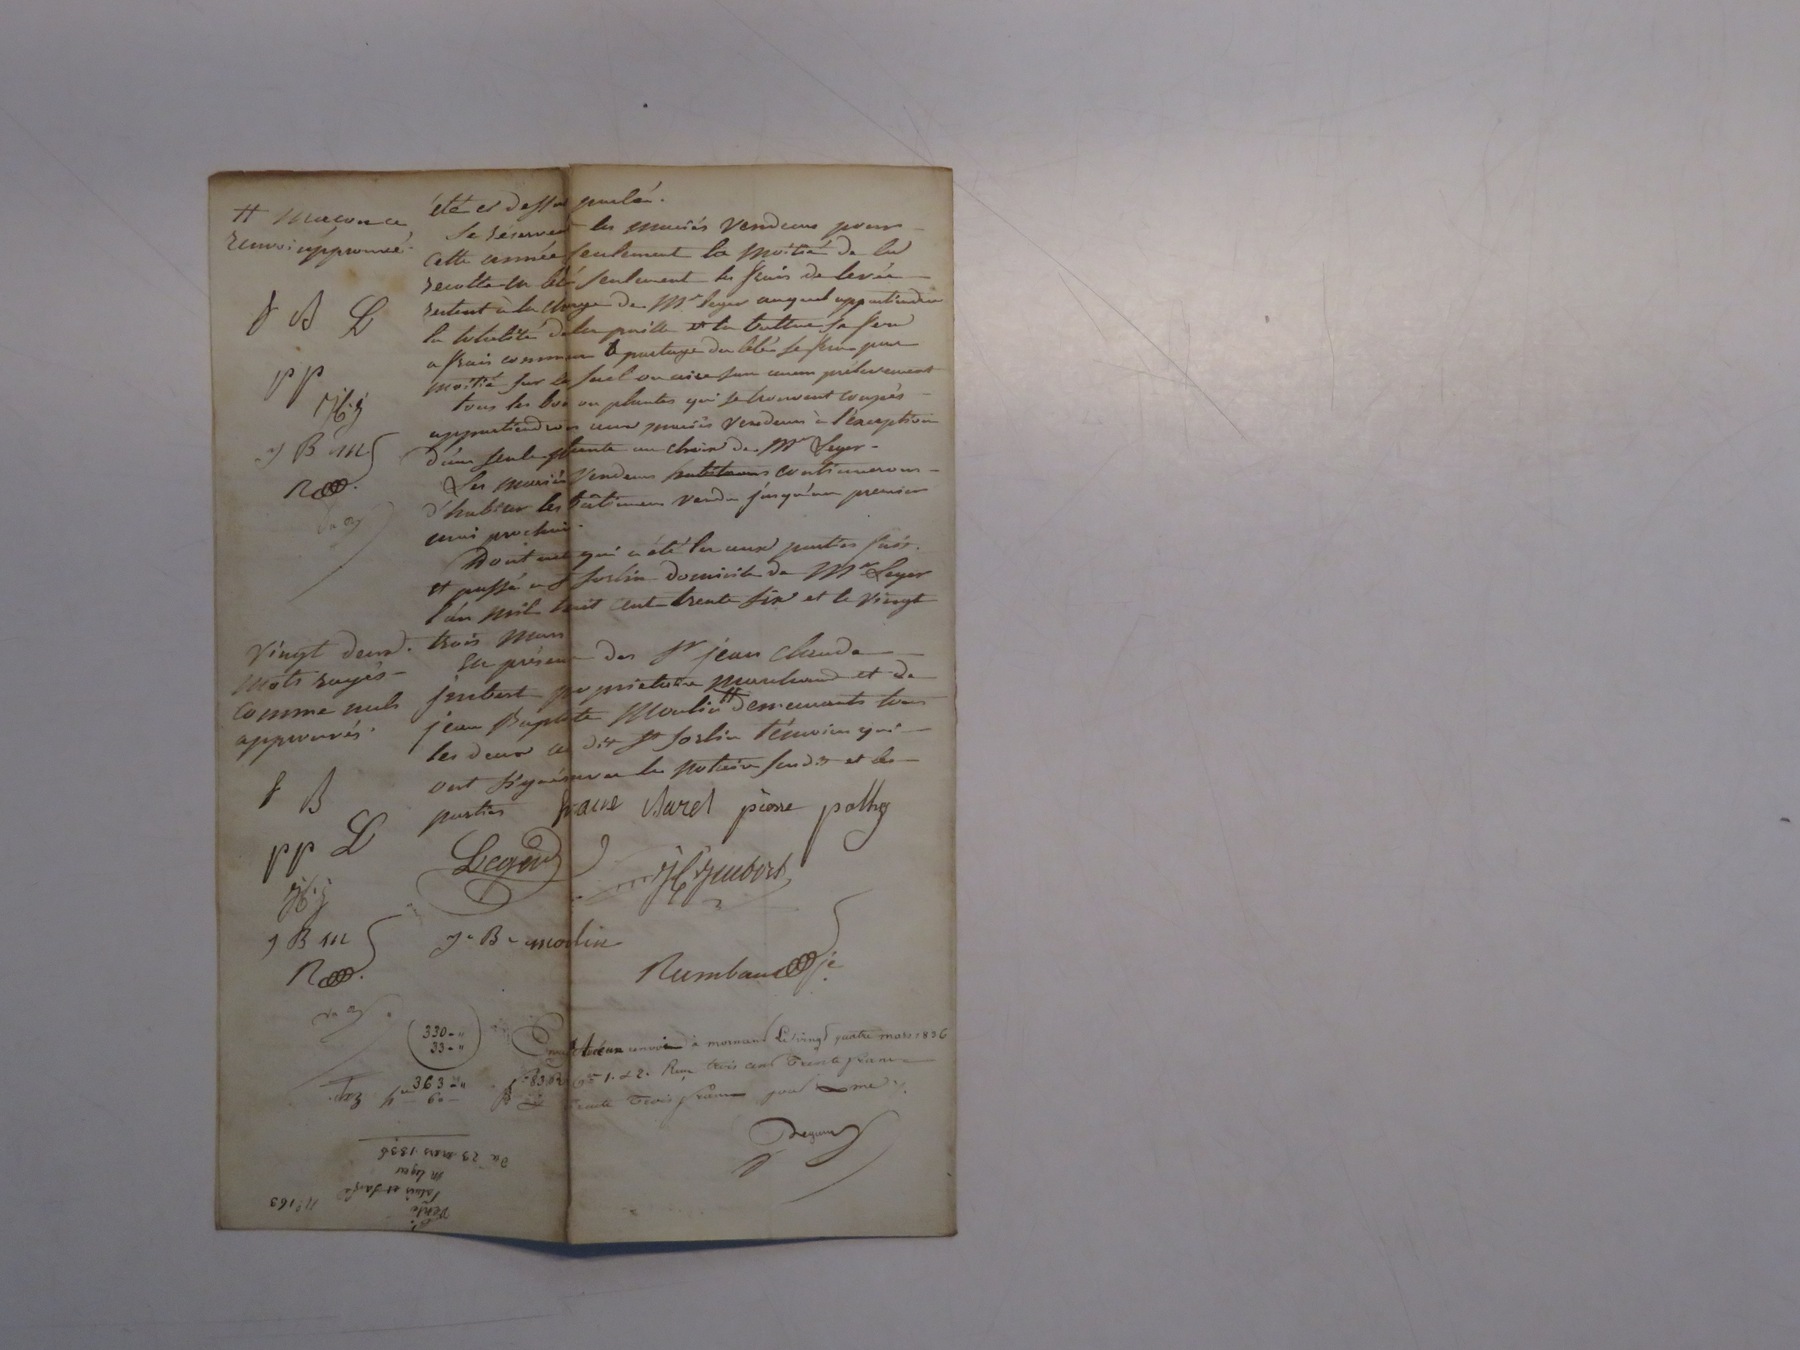 été ci dessus parlé.
Se réservent les mariés vendeurs pour
cette année seulement la moitié de la
recolte en blé seulement les frais de levée
restent à la charge de Mr Leger auquel appartiendra
la totalité de la paille et la batture se fera
a frais commun le partage du blé se fera par
moitié sur le suel ou aire sans aucun prélevement
tous les bois ou plantes qui se trouvent coupés
appartiendront aux mariés vendeurs à l'exception
d'une seule plante au choix de Mr Leger
Les mariés vendeurs continueront
d'habiter les bâtimens vendu jusqu'au premier
mai prochain.
Dont acte qui a été lu aux parties fait
et passé a St Sorlin domicile de Mr Leger
l'an mil huit cent trente six et le vingt
trois mars
En présence des Sr jean claude
jmbert propriétaire marchand et de
jean Baptiste Moulin # demeurants tous
les deux au dit St Sorlin témoins qui
ont signé avec les notaire susdit et les
parties
# Macon ce
renvoi approuvé.
f B L
pp
JCj
j B m
R
Vingt deux
mots rayés
comme nuls
approuvés.
f B
pp L
JCj
j B m
R
pierre pothy
Leger
JC Jmbert
j B moulin
Rambaud
330 - "
33 - "
363 - "
à mornant le vingt quatre mars 1836
1. et 2. Reçu trois cent trente francs
trente trois francs pour
N° 163
Vente
M Leger
Du 23 mars 1836